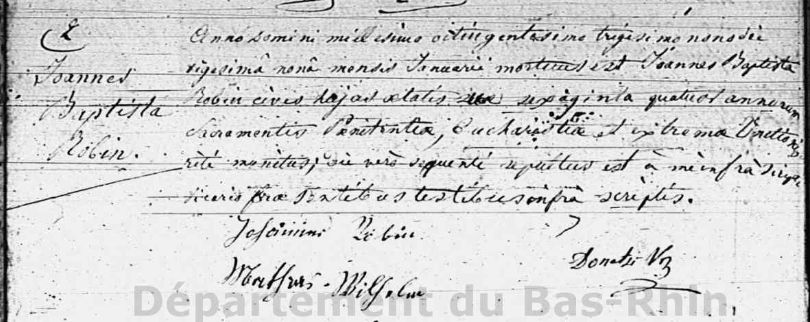 2
Joannes
Baptista
Robin.
Anno Domini millesimo octingentesimo trigesimo nono die
vigesimâ nonâ mensis Januarii mortuus est Joannes Baptista
Robin cives hujas ætatis suæ sexaginta quatuor annorum
Sacramentis Pœnitentiæ, Eucharistiæ et extremæ Unctionis
ritè munitus; die verò sequenti sepultus est à me infrà scripto
vicario præsentibus testibus infrà scriptis.
Robin
Donatus
Mathias Wilhelm
Département du Bas-Rhin